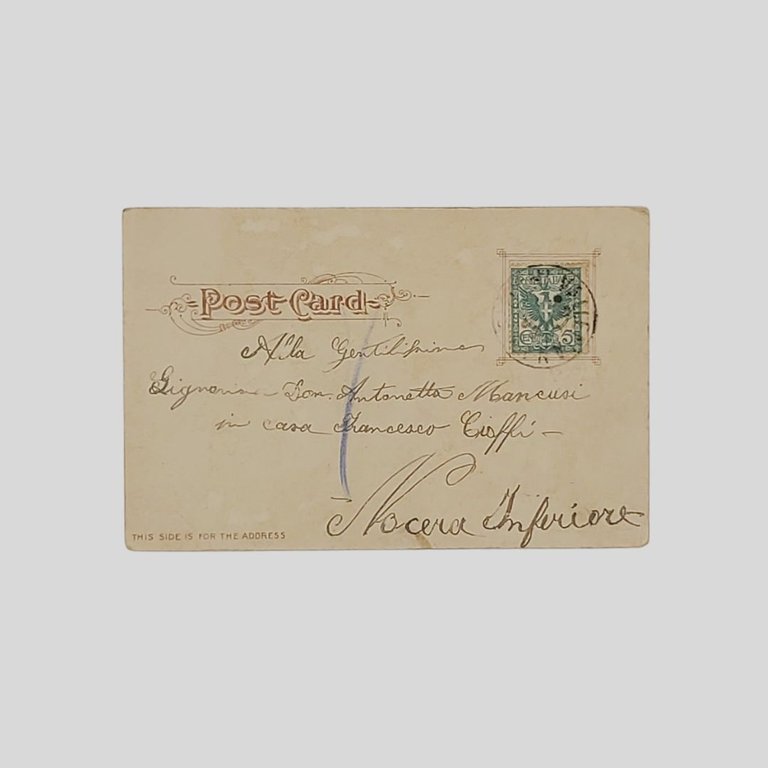 Post Card
Alla Gentilissima
Signora - Don. Antonetta Mancusi
in casa Francesco Cioffi -
Nocera Inferiore
THIS SIDE IS FOR THE ADDRESS
5